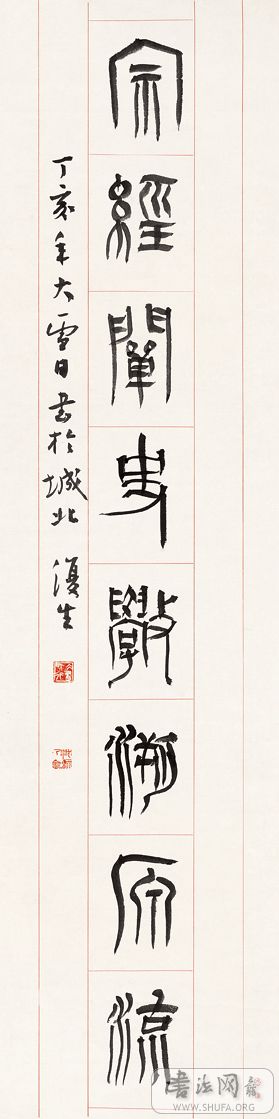 宗經闡史斆溯原流
丁亥年大雪日書於城北 生
书法网
WWW.SHUFA.ORG